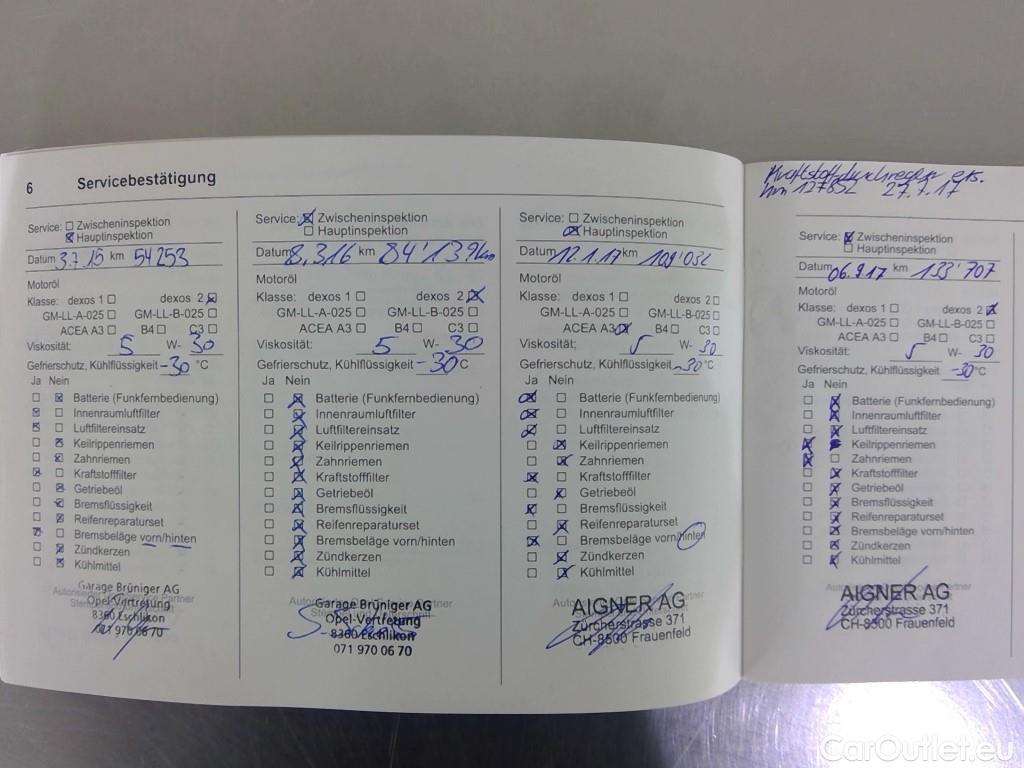 6 Servicebestätigung
Service: ☐ Zwischeninspektion
☒ Hauptinspektion
Datum 3.7.15 km 54253
Motoröl
Klasse: dexos 1 ☐ dexos 2 ☒
GM-LL-A-025 ☐ GM-LL-B-025 ☐
ACEA A3 ☐ B4 ☐ C3 ☐
Viskosität: 5 W- 30
Gefrierschutz, Kühlflüssigkeit -30 °C
Ja Nein
☐ ☒ Batterie (Funkfernbedienung)
☒ ☐ Innenraumluftfilter
☒ ☐ Luftfiltereinsatz
☐ ☒ Keilrippenriemen
☐ ☒ Zahnriemen
☒ ☐ Kraftstofffilter
☐ ☒ Getriebeöl
☐ ☒ Bremsflüssigkeit
☐ ☒ Reifenreparaturset
☒ ☐ Bremsbeläge vorn/hinten
☐ ☒ Zündkerzen
☐ ☒ Kühlmittel
Garage Brüniger AG
Opel-Vertretung
8360 Eschlikon
071 970 06 70
Service: ☒ Zwischeninspektion
☐ Hauptinspektion
Datum 8.3.16 km 84'139km
Motoröl
Klasse: dexos 1 ☐ dexos 2 ☒
GM-LL-A-025 ☐ GM-LL-B-025 ☐
ACEA A3 ☐ B4 ☐ C3 ☐
Viskosität: 5 W- 30
Gefrierschutz, Kühlflüssigkeit -30 °C
Ja Nein
☐ ☒ Batterie (Funkfernbedienung)
☐ ☒ Innenraumluftfilter
☐ ☒ Luftfiltereinsatz
☐ ☒ Keilrippenriemen
☐ ☒ Zahnriemen
☐ ☒ Kraftstofffilter
☐ ☒ Getriebeöl
☐ ☒ Bremsflüssigkeit
☐ ☒ Reifenreparaturset
☐ ☒ Bremsbeläge vorn/hinten
☐ ☒ Zündkerzen
☐ ☒ Kühlmittel
Garage Brüniger AG
Opel-Vertretung
8360 Eschlikon
071 970 06 70
Service: ☐ Zwischeninspektion
☒ Hauptinspektion
Datum 12.1.17 km 109'032
Motoröl
Klasse: dexos 1 ☐ dexos 2 ☐
GM-LL-A-025 ☐ GM-LL-B-025 ☐
ACEA A3 ☒ B4 ☐ C3 ☐
Viskosität: 5 W- 30
Gefrierschutz, Kühlflüssigkeit -30 °C
Ja Nein
☒ ☐ Batterie (Funkfernbedienung)
☒ ☐ Innenraumluftfilter
☒ ☐ Luftfiltereinsatz
☐ ☒ Keilrippenriemen
☐ ☒ Zahnriemen
☒ ☐ Kraftstofffilter
☐ ☒ Getriebeöl
☒ ☐ Bremsflüssigkeit
☐ ☒ Reifenreparaturset
☒ ☐ Bremsbeläge vorn/hinten
☐ ☒ Zündkerzen
☐ ☒ Kühlmittel
AIGNER AG
Zürcherstrasse 371
CH-8500 Frauenfeld
ers.
km 127852 27.7.17
Service: ☒ Zwischeninspektion
☐ Hauptinspektion
Datum 06.9.17 km 133'707
Motoröl
Klasse: dexos 1 ☐ dexos 2 ☒
GM-LL-A-025 ☐ GM-LL-B-025 ☐
ACEA A3 ☐ B4 ☐ C3 ☐
Viskosität: 5 W- 30
Gefrierschutz, Kühlflüssigkeit -30 °C
Ja Nein
☐ ☒ Batterie (Funkfernbedienung)
☐ ☒ Innenraumluftfilter
☐ ☒ Luftfiltereinsatz
☒ Keilrippenriemen
☒ ☐ Zahnriemen
☐ ☒ Kraftstofffilter
☐ ☒ Getriebeöl
☐ ☒ Bremsflüssigkeit
☐ ☒ Reifenreparaturset
☐ ☒ Bremsbeläge vorn/hinten
☐ ☒ Zündkerzen
☐ ☒ Kühlmittel
AIGNER AG
Zürcherstrasse 371
CH-8500 Frauenfeld
CarOutlet.eu